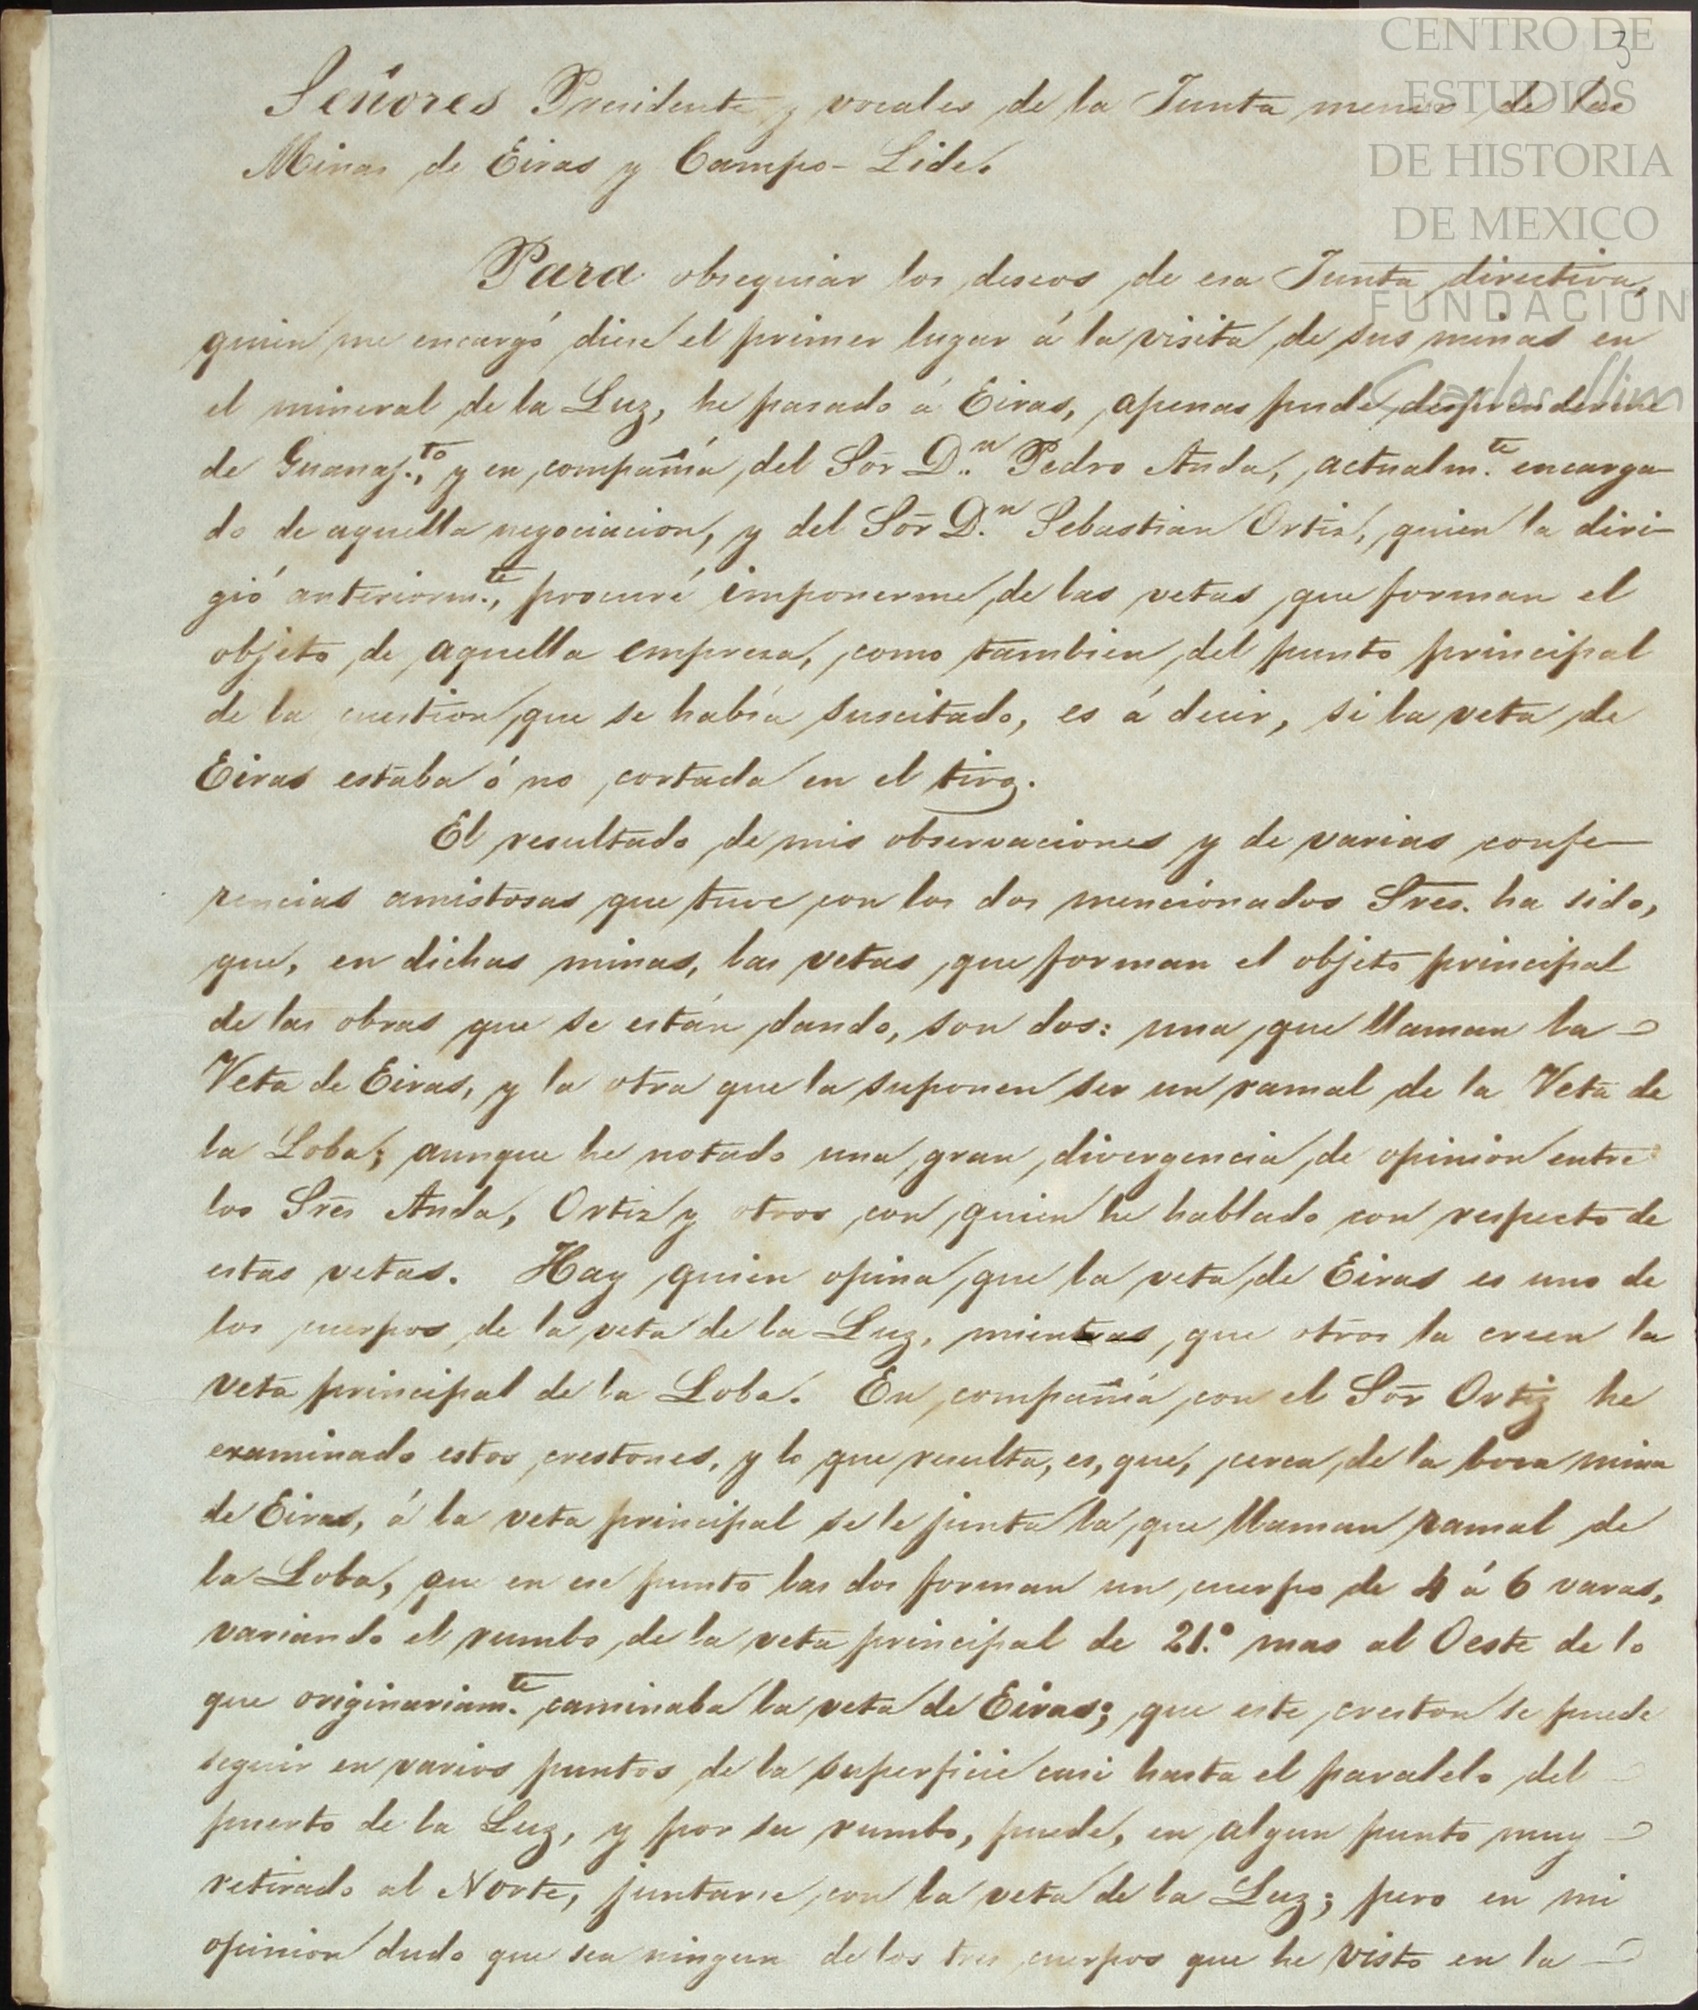 CENTRO DE
ESTUDIOS
DE HISTORIA
DE MEXICO
FUNDACIÓN
Carlos Slim
3
Señores Presidente y vocales de la Junta menor de las
Minas de Eiras y Campo-Lide.
Para obsequiar los deseos de esa Junta directiva,
quien me encargó diese el primer lugar á la visita de sus minas en
el mineral de la Luz, he pasado á Eiras, apenas pude desprenderme
de Guanaj.to, y en compañía del Sor D.n Pedro Anda, actualm.te encarga-
do de aquella negociacion, y del Sor D.n Sebastian Ortiz, quien la diri-
gió anteriorm.te, procuré imponerme de las vetas que forman el
objeto de aquella empresa, como tambien del punto principal
de la cuestion que se había suscitado, es á decir, si la veta de
Eiras estaba ó no cortada en el tiro.
El resultado de mis observaciones y de varias confe-
rencias amistosas que tuve con los dos mencionados Sres. ha sido,
que, en dichas minas, las vetas que forman el objeto principal
de las obras que se están dando, son dos: una que llaman la
Veta de Eiras, y la otra que la suponen ser un ramal de la Veta de
la Loba; aunque he notado una gran divergencia de opinion entre
los Sres Anda, Ortiz y otros con quien he hablado con respecto de
estas vetas. Hay quien opina que la veta de Eiras es uno de
los cuerpos de la veta de la Luz, mientras que otros la creen la
veta principal de la Loba. En compañía con el Sor Ortiz he
examinado estos crestones, y lo que resulta, es, que, cerca de la boca mina
de Eiras, á la veta principal se le junta la que llaman ramal de
la Loba, que en ese punto las dos forman un cuerpo de 4 á 6 varas,
variando el rumbo de la veta principal de 21.° mas al Oeste de lo
que originariam.te caminaba la veta de Eiras; que este creston se puede
seguir en varios puntos de la superficie casi hasta el paralelo del
puerto de la Luz, y por su rumbo, puede, en algun punto muy
retirado al Norte, juntarse con la veta de la Luz; pero en mi
opinion dudo que sea ningun de los tres cuerpos que he visto en la